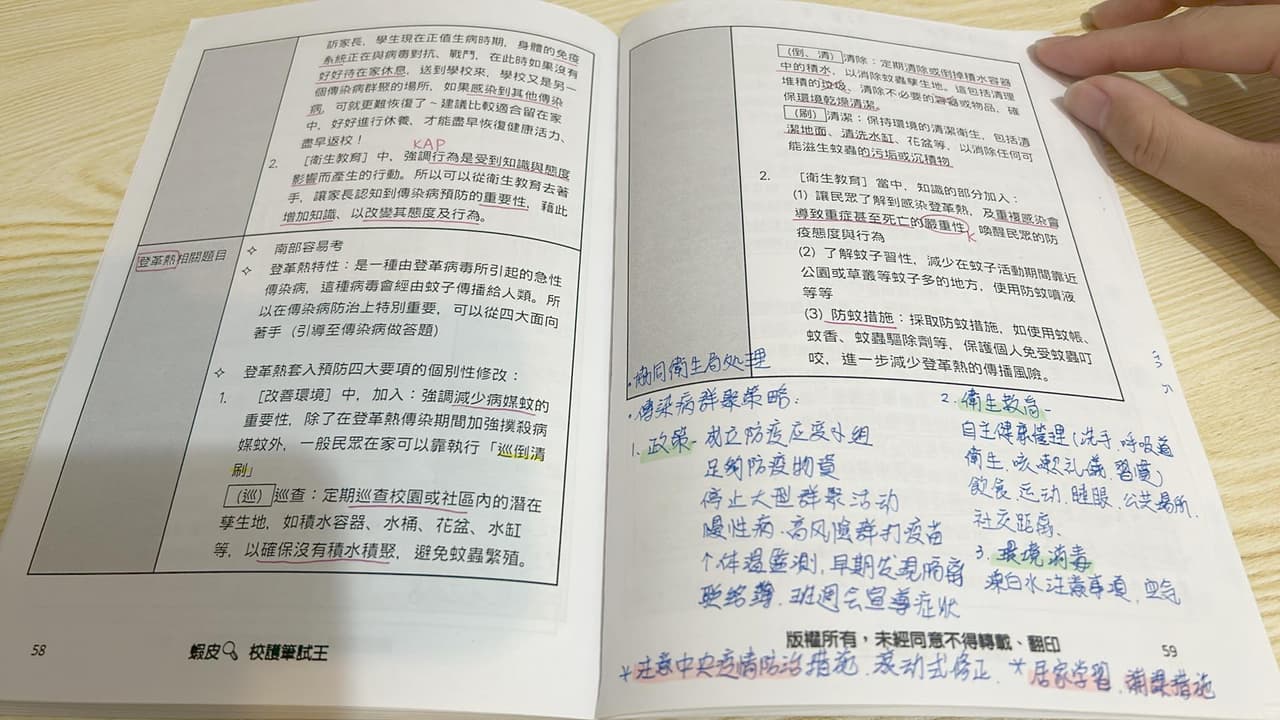 訴家長，學生現在正值生病時期，身體的免疫
系統正在與病毒對抗、戰鬥，在此時如果沒有
好好待在家休息，送到學校來，學校又是另一
個傳染病群聚的場所，如果感染到其他傳染
病，可就更難恢復了～建議比較適合留在家
中，好好進行休養、才能盡早恢復健康活力、
盡早返校！
KAP
2. ［衛生教育］中，強調行為是受到知識與態度
影響而產生的行動。所以可以從衛生教育去著
手，讓家長認知到傳染病預防的重要性，藉此
增加知識、以改變其態度及行為。
登革熱相關題目
✧ 南部容易考
✧ 登革熱特性：是一種由登革病毒所引起的急性
傳染病，這種病毒會經由蚊子傳播給人類。所
以在傳染病防治上特別重要，可以從四大面向
著手（引導至傳染病做答題）
✧ 登革熱套入預防四大要項的個別性修改：
1. ［改善環境］中，加入：強調減少病媒蚊的
重要性，除了在登革熱傳染期間加強撲殺病
媒蚊外，一般民眾在家可以靠執行「巡倒清
刷」
(巡) 巡查：定期巡查校園或社區內的潛在
孳生地，如積水容器、水桶、花盆、水缸
等，以確保沒有積水積聚，避免蚊蟲繁殖。
58
蝦皮 校護筆試王
(倒、清) 清除：定期清除或倒掉積水容器
中的積水，以消除蚊蟲孳生地。這包括清理
堆積的垃圾、清除不必要的容器或物品，確
保環境乾燥清潔。
(刷) 清潔：保持環境的清潔衛生，包括清
潔地面、清洗水缸、花盆等，以消除任何可
能滋生蚊蟲的污垢或沉積物
2. ［衛生教育］當中，知識的部分加入：
(1) 讓民眾了解到感染登革熱，及重複感染會
導致重症甚至死亡的嚴重性，喚醒民眾的防
K
疫態度與行為
(2) 了解蚊子習性，減少在蚊子活動期間靠近
公園或草叢等蚊子多的地方，使用防蚊噴液
等等
(3) 防蚊措施：採取防蚊措施，如使用蚊帳、
蚊香、蚊蟲驅除劑等，保護個人免受蚊蟲叮
咬，進一步減少登革熱的傳播風險。
·協同衛生局处理
·傳染病群聚策略：
1. 政策- 成立防疫应变小組
足夠防疫物資
停止大型群聚活动
慢性病、高风險群打疫苗
个体溫監測，早期发現隔离
联絡簿、班週会宣導症状
2. 衛生教育-
自主健康管理(洗手、呼吸道
衛生、咳嗽礼儀、習慣)
飲食、运动、睡眠、公共場所、
社交距离、
3. 環境消毒
漂白水注意事項、空气
版權所有，未經同意不得轉載、翻印
59
*注意中央疫情防治措施、滾动式修正、*居家学習、補課措施